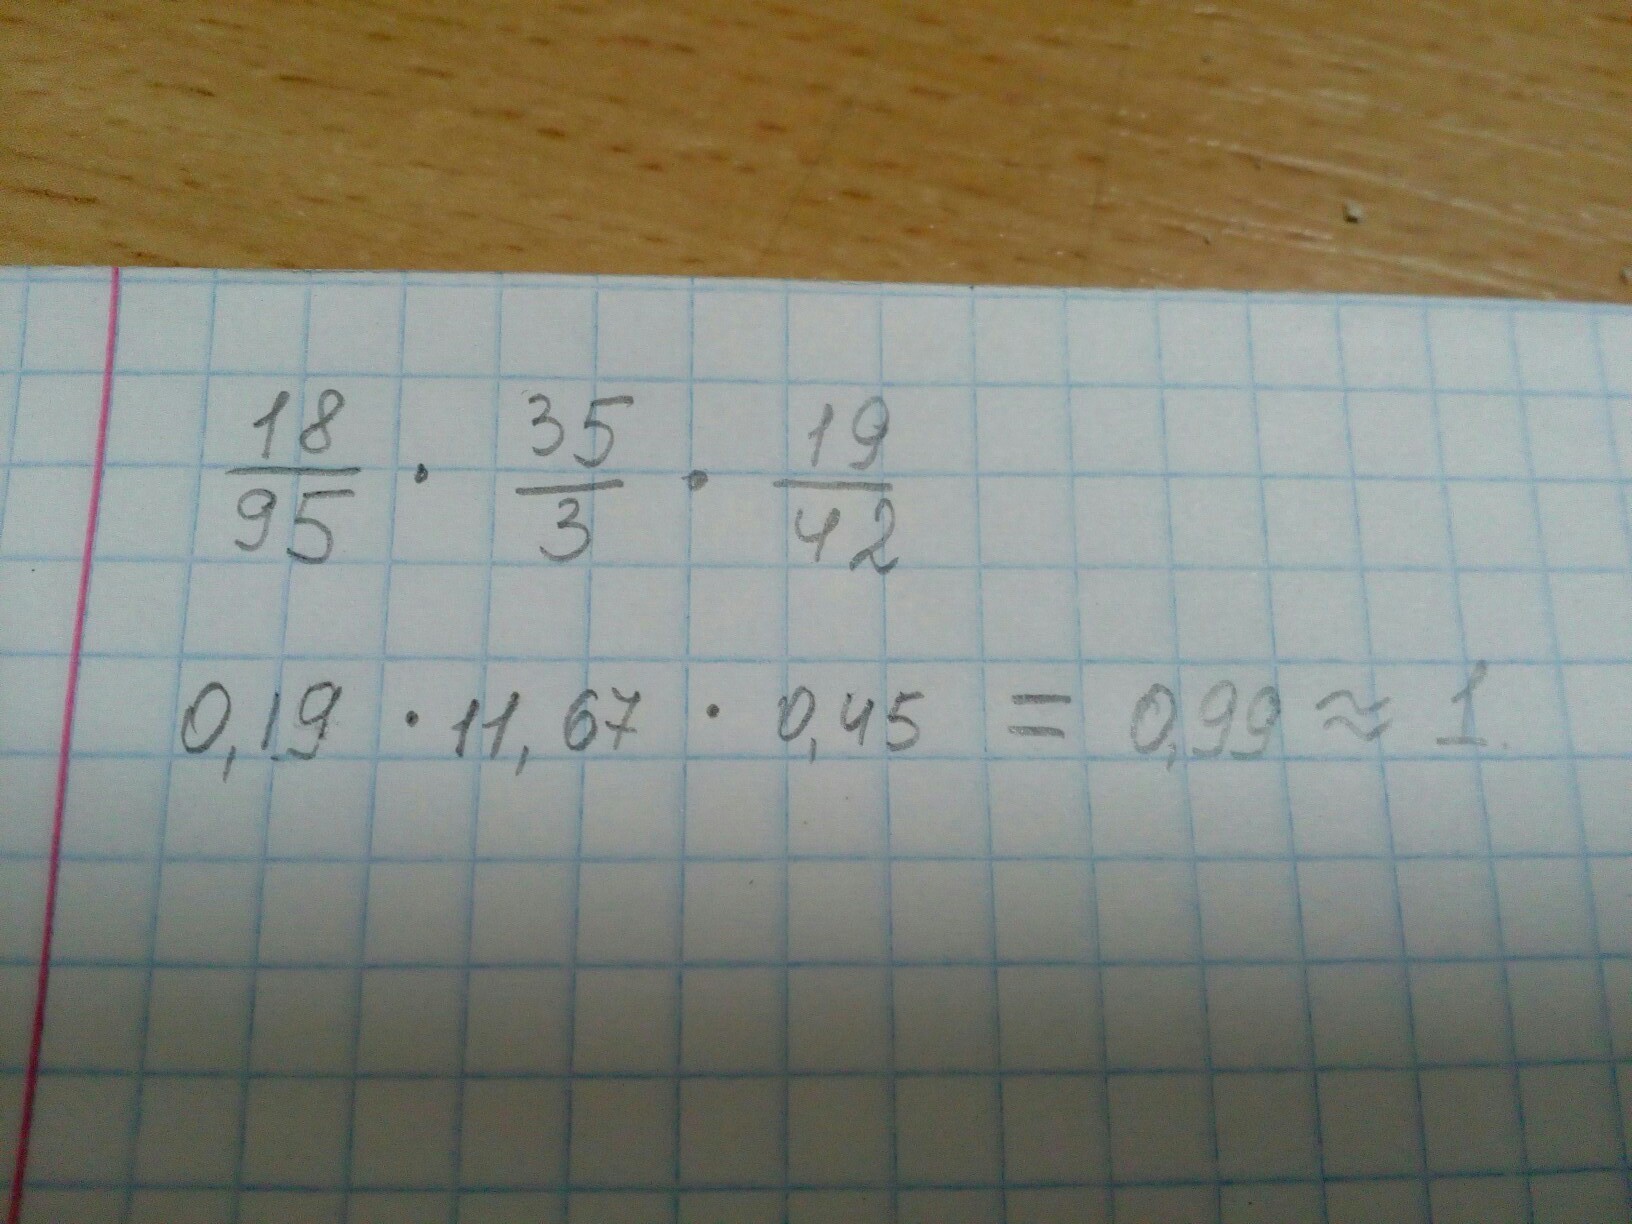 18/95 · 35/3 · 19/42
0,19 · 11,67 · 0,45 = 0,99 ≈ 1.